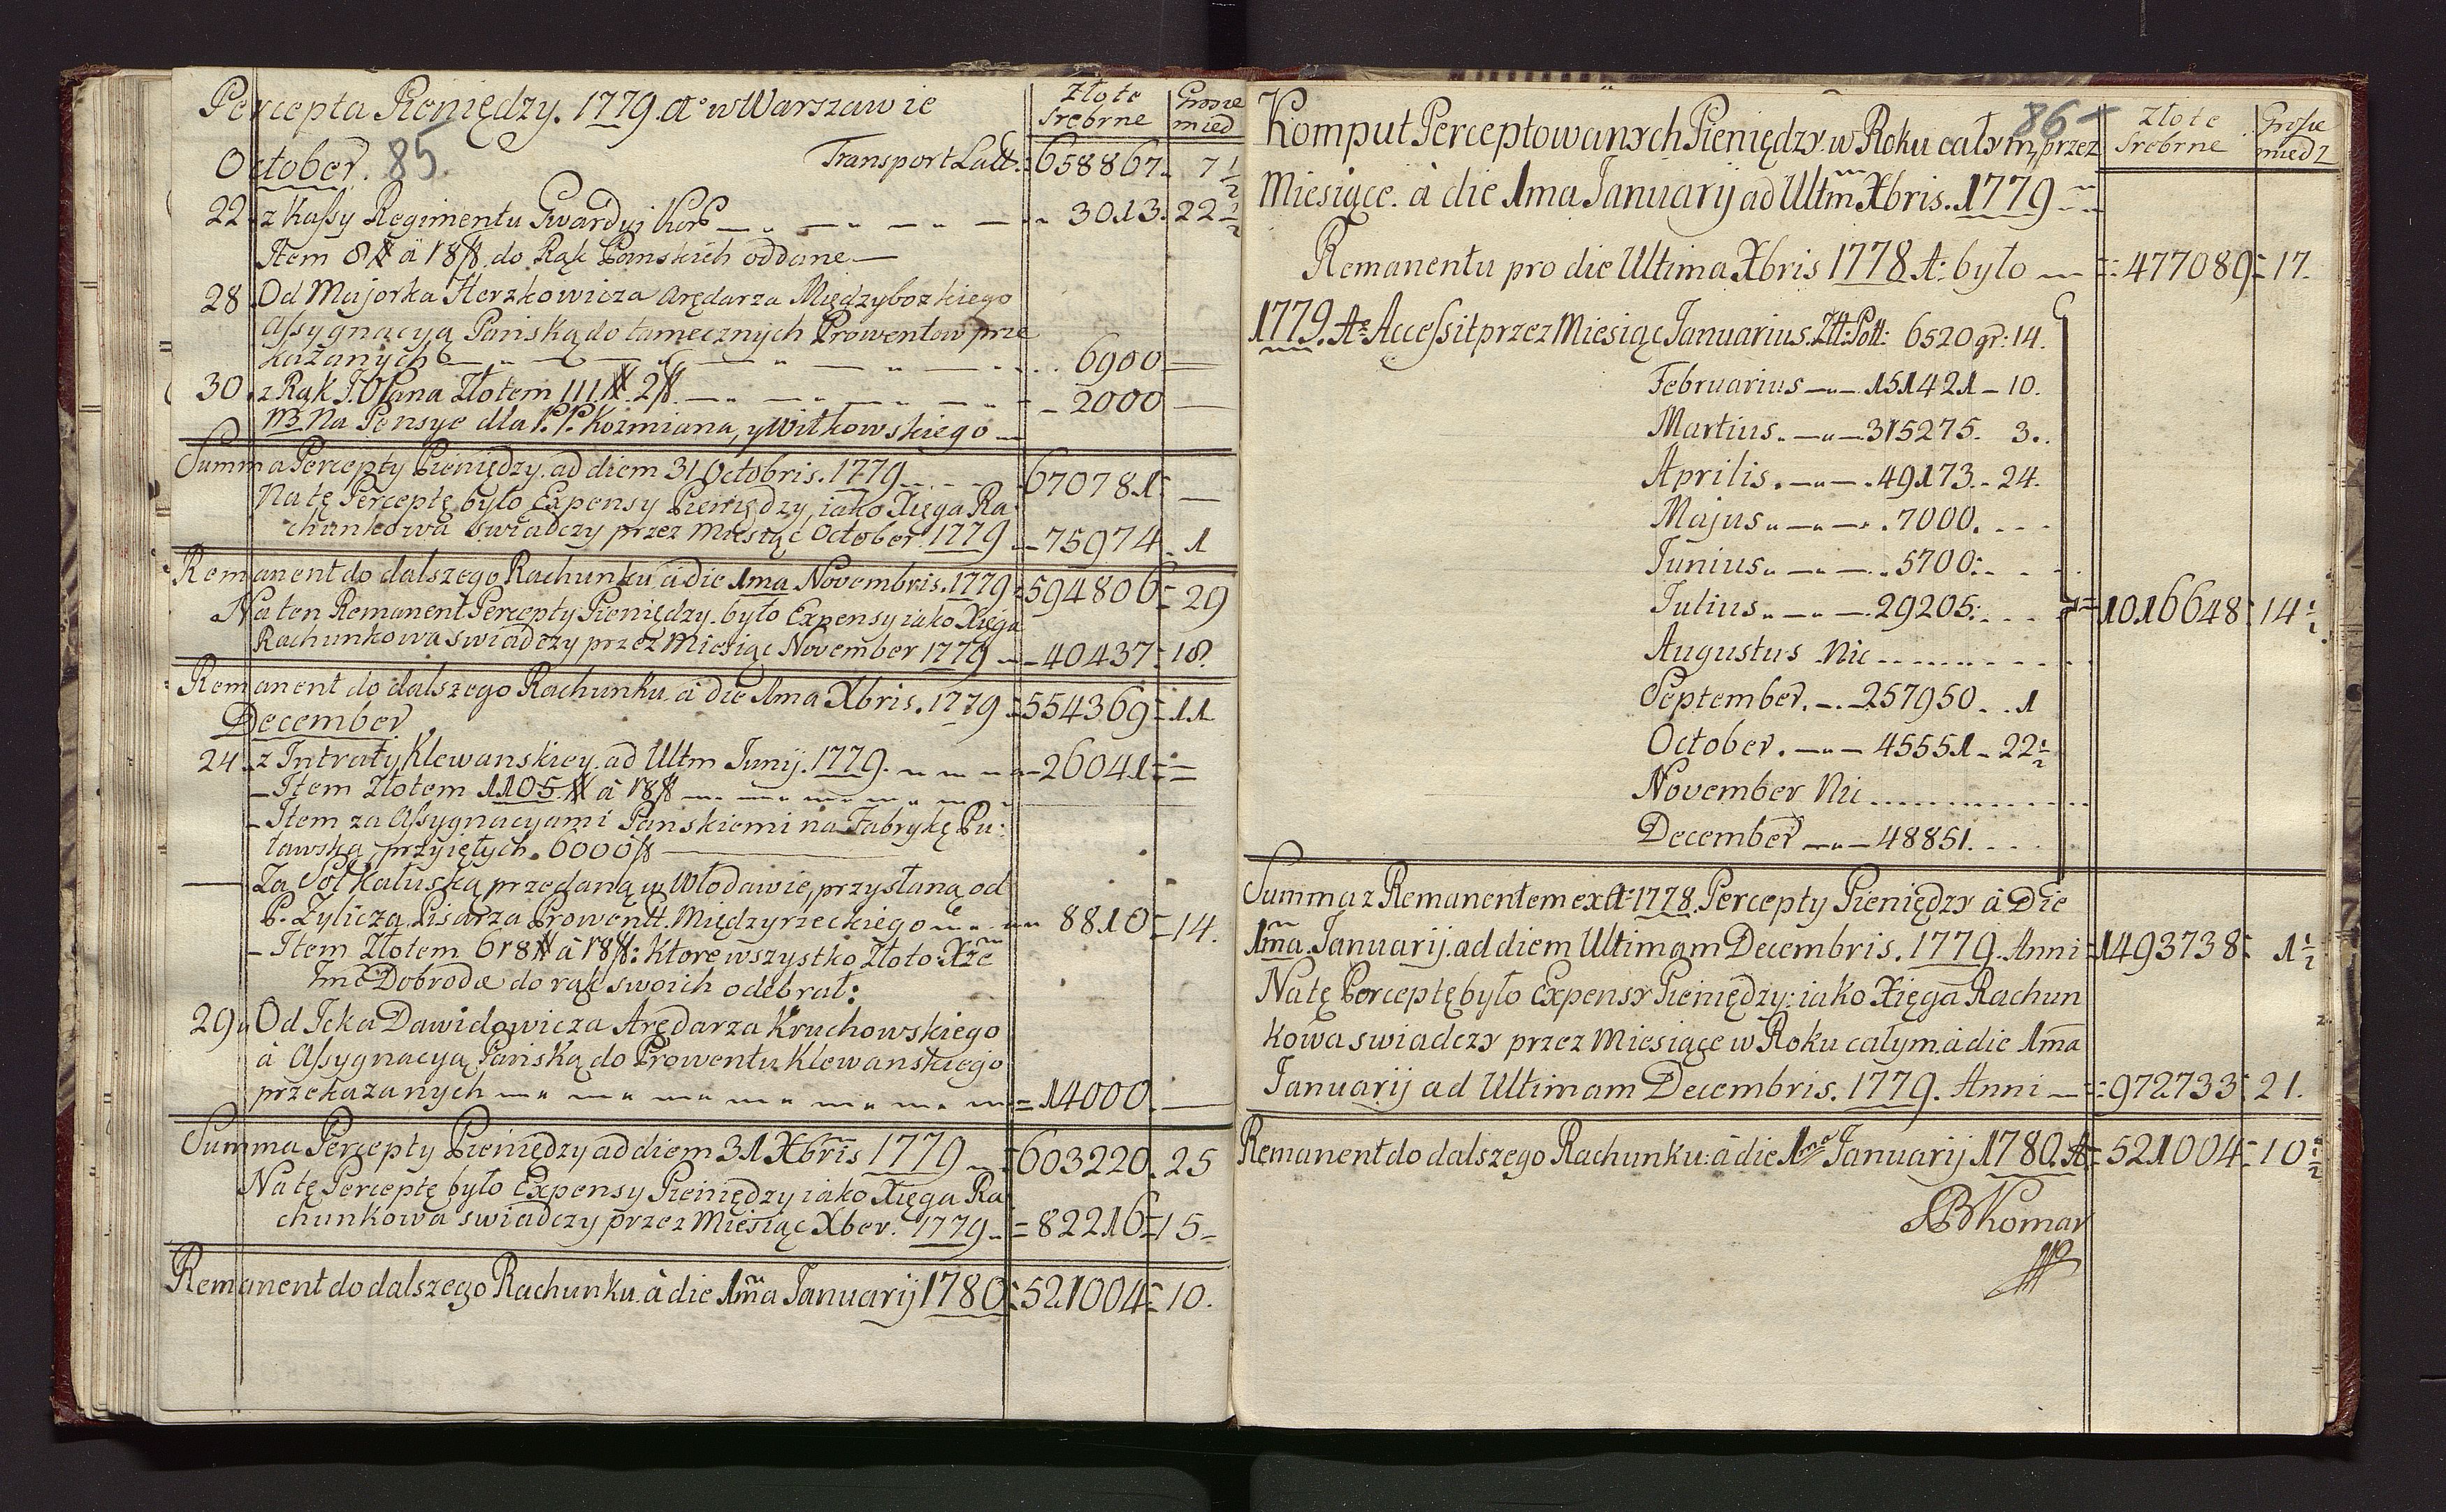 Percepta Pieniędzy. 1779. Aº w Warszawie
Złote Srebrne
Grosze mied
October. 85.
Transport Latt: 658867. 7½
22. z Kassy Regimentu Gwardyi Kor 3013. 22½
Item 8# à 18 do Rąk Panskich oddane —
28. Od Majorka Herzkowicza Arędarza Międzybozkiego
Assygnacyą Panską do tamecznych Prowentow prze
kazanych 6900 —
30. z Rąk J.O. Pana Złotem 111 # 2 2000 —
NB. Na Pensye dla P.P. Kozmiana, y Witkowskiego
Summa Percepty Pieniędzy. ad diem 31 Octobris. 1779 670781: —
Na tę Perceptę było Expensy Pieniędzy, iako Xięga Ra
chunkowa swiadczy przez Miesiąc October. 1779 75974. 1
Remanent do dalszego Rachunku à die 1ma Novembris. 1779 594806 = 29
Na ten Remanent Percepty Pieniędzy. było Expensy iako Xięga
Rachunkowa swiadczy przez Miesiąc November 1779 40437 = 18.
Remanent do dalszego Rachunku. à die 1ma Xbris. 1779 554369 = 11
December.
24. z Intraty Klewanskiey. ad Ultm Junij. 1779. 26041 = =
– Item Złotem 1105 # à 18
– Item za Assygnacyami Panskiemi na Fabrykę Pu:
ławską przyiętych. 6000
— Za Sol Kałuską przedaną w Włodawie, przysłaną od
P. Zylicza Pisarza Prowentt. Międzyrzeckiego 8810 = 14.
– Item Złotem 618# à 18: Ktore wszystko Złoto Xże
Imć Dobrodz do rąk swoich odebrał:
29. Od Icka Dawidowicza Arędarza Kruchowskiego
à Assygnacyą Panską do Prowentu Klewanskiego
przekazanych 14000. —
Summa Percepty Pieniędzy ad diem 31 Xbris 1779 603220. 25
Na tę Perceptę było Expensy Pieniędzy iako Xięga Ra
chunkowa swiadczy przez Miesiąc Xber. 1779 82216 = 15
Remanent do dalszego Rachunku. à die 1ma Januarij 1780 521004 = 10.
86
Komput Perceptowanych Pieniędzy. w Roku całym, przez
Złote Srebrne
Grosze miedz
Miesiące. à die 1ma Januarij ad Ultm Xbris. 1779
Remanentu pro die Ultima Xbris 1778 A: było 477089 = 17.
1779. Aº Accessit przez Miesiąc Januarius. Złł: Poll: 6520 gr: 14.
Februarius 151421 – 10.
Martius. 315275. 3.
Aprilis. 49173. – 24.
Majus 7000.
Junius 5700:
Julius 29205: 1016648: 14½
Augustus Nic
September. 257950. 1
October. 45551 – 22½
November Nic
December 48851.
Summa z Remanentem ex A: 1778. Percepty Pieniędzy à Die
1ma. Januarij. ad diem Ultimam Decembris. 1779. Anni 1493738: 1½
Na tę Perceptę było Expensy Pieniędzy: iako Xięga Rachun
kowa swiadczy przez Miesiące w Roku całym. à die 1ma
Januarij ad Ultimam Decembris. 1779. Anni 972733: 21.
Remanent do dalszego Rachunku: à die 1ma Januarij 1780. A 521004 = 10½
Komar